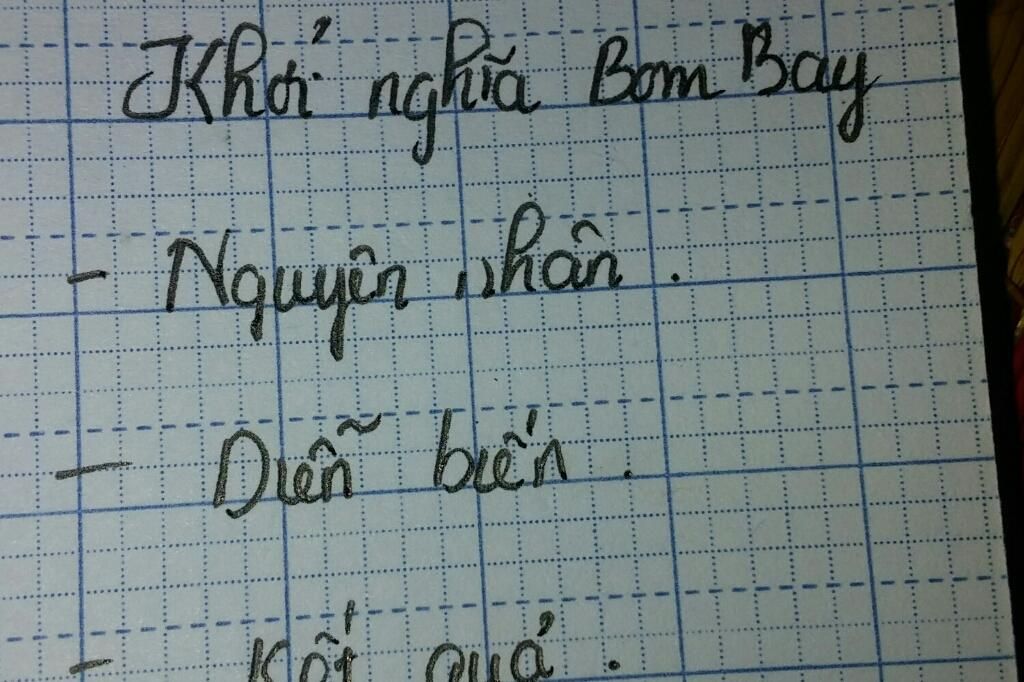 Khởi nghĩa Bom Bay
- Nguyên nhân.
- Diễn biến.
- Kết quả.